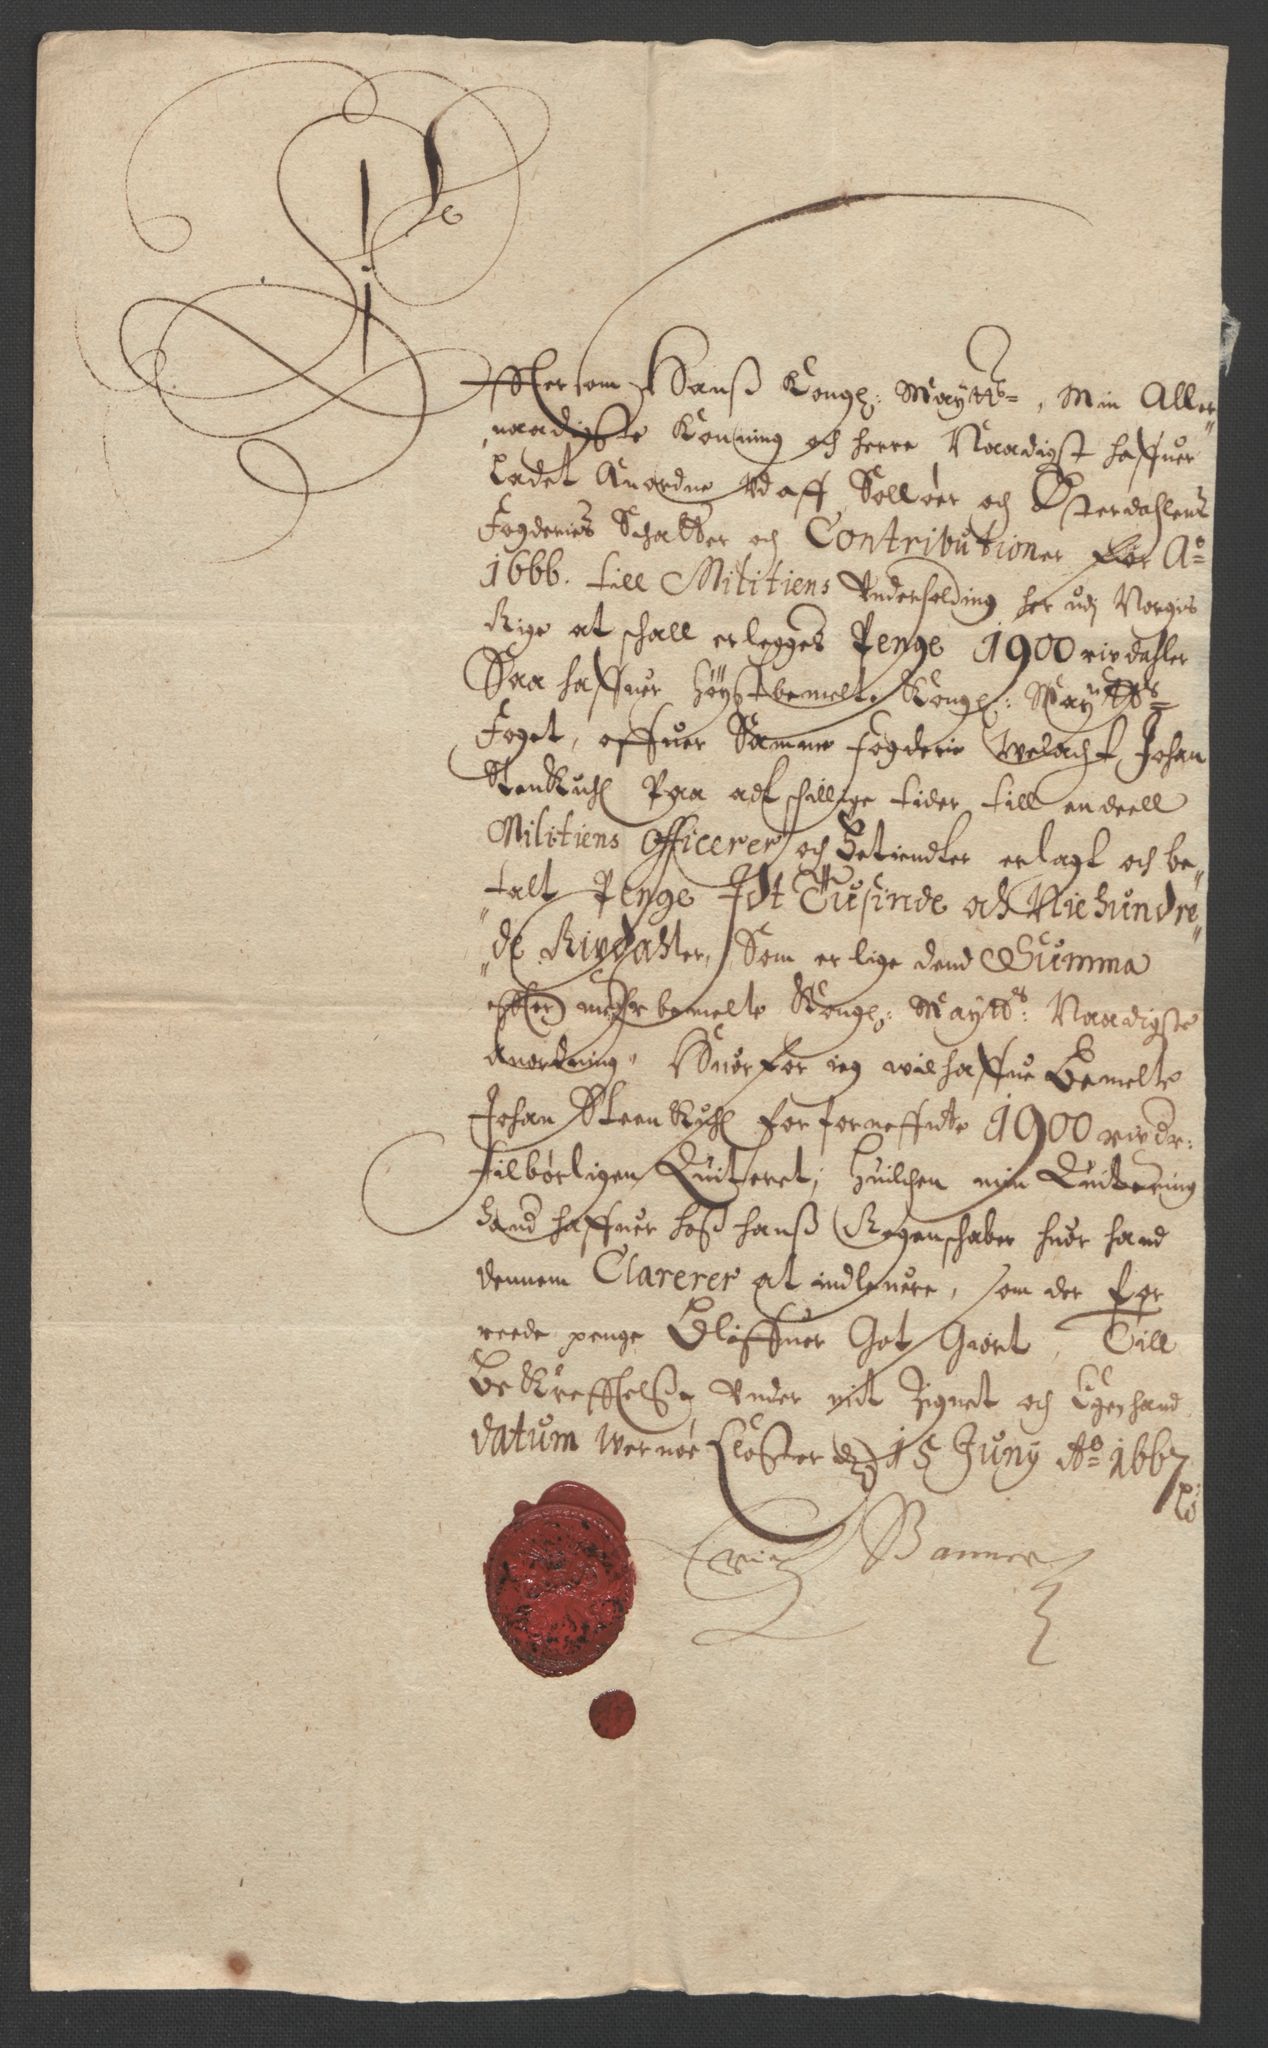 Effter som Hanß Kongl: Maÿtts=, Min Aller"
"naadigste Konning och herre Naadigst haffuer
Ladet Anordne Vdaff Solløer och Østerdahlens
Fogderies Schatter och Contributioner for Aº
1666. till Militiens Vnderholding her udj Norgis
Rige at schall erlegges Penge 1900 rixdahler
Saa haffuer høÿstbemelte Kongl: Maÿtts=
Foget, offuer Samme fogderie Welacht Johan
StenKuhl Paa adtschillige tider till en deell
Militiens Officerer och Betiendter erlagt och be"
"talt Penge Idt Tusinde och Niehundre"
"de Rixdahler, Som er lige dend Summa
effter meehrbemelte Kongl: Maÿtts: Naadigste
Anordning, Huorfor ieg wil haffue Bemelte
Johan SteenKuhl for forneffndte 1900 rixdr:
tilbørligen Quiteret, Huilchen min Quitering
hand haffuer hoß hanß Regenschaber huor hand
dennem Clarerer at indleuere, som der for
reede penge Bliffuer Got Giort, Till
Bekreffttelße Vnder mit Zignet och Egen hand
datum Wernøe Closter dn 15 Junÿ Aº 1667
Erich Banner